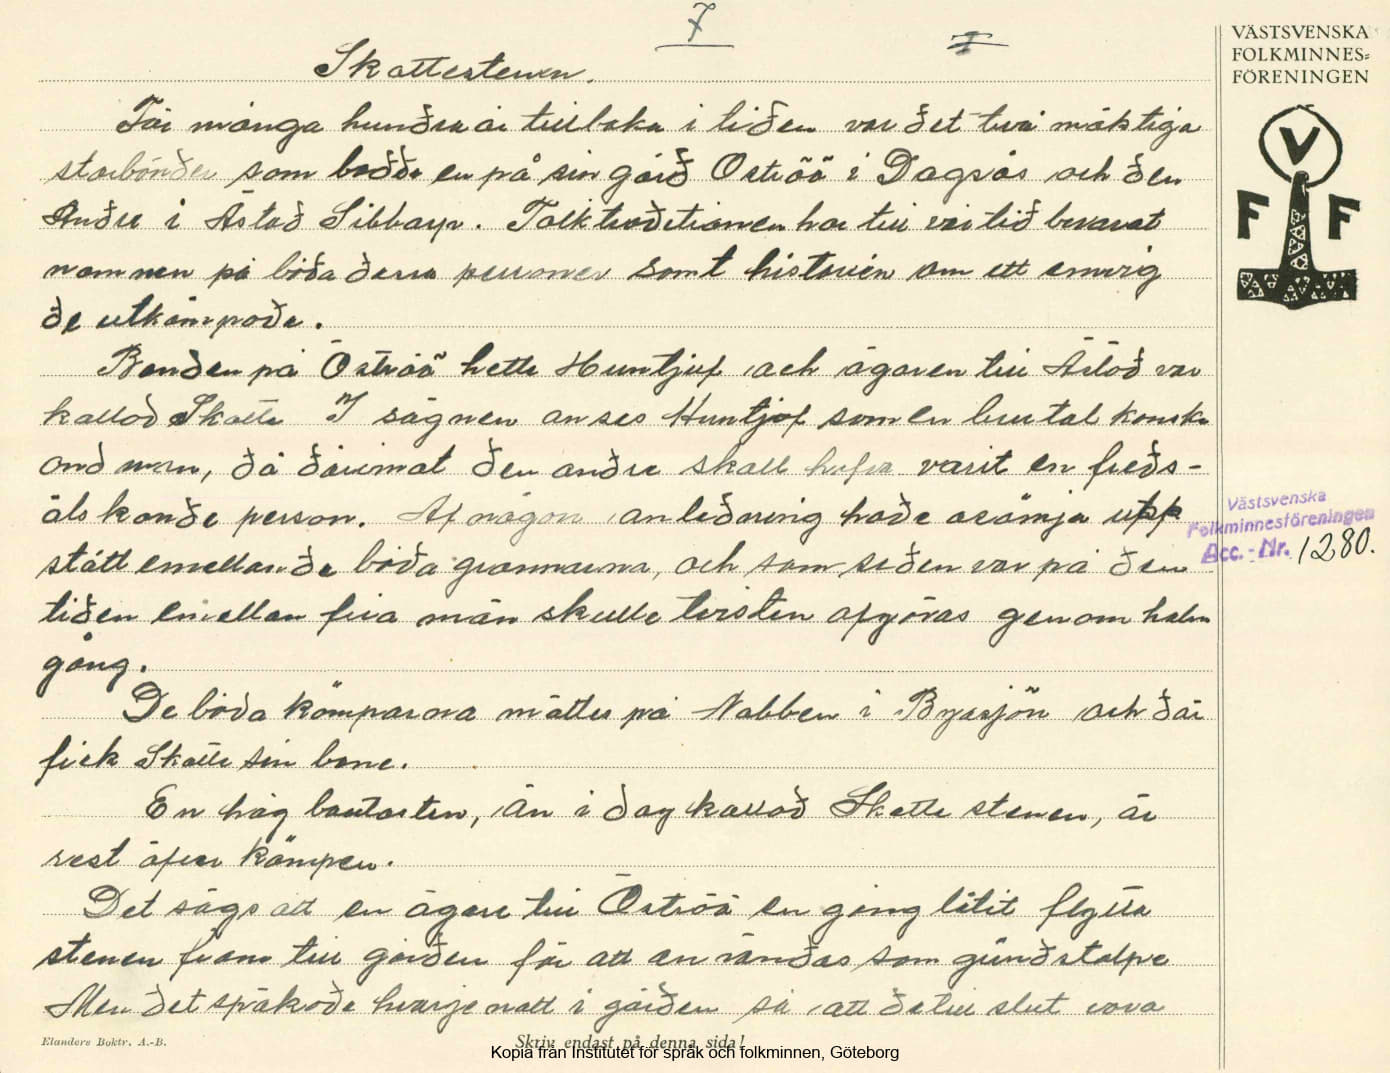 7
I
VÄSTSVENSKA
FOLKMINNES=
FÖRENINGEN
V
F F
Skattestenen.
För många hundra år tillbaka i tiden var det två mäktiga
storbönder som bodde en på sin gård Öströö i Dagsås och den
Andre i Åstad Sibbarp. Folktraditionen har till vår tid bevarat
namnen på båda dessa personer samt historien om ett envig
de utkämpade.
Bonden på Öströö hette Huntjuf och ägaren till Åstad var
kallad Skatte I sägnen anses Huntjof som en brutal kanske
ond man, då däremot den andre skall hafva varit en freds-
älskande person. Af någon anledning hade osämja upp
stått emellan de båda grannarna, och som seden var på den
tiden emellan fria män skulle tvisten afgöras genom holm
gång.
De båda kämparna möttes på Nabben i Byasjön och där
fick Skatte sin bane.
En hög bautasten, än i dag kallad Skatte stenen, är
rest öfver kämpen.
Det sägs att en ägare till Öströö en gång låtit flytta
stenen fram till gården för att användas som grindstolpe
Men det spökade hvarje natt i gården så att de till slut
Västsvenska
Folkminnesföreningen
Acc. - Nr. 1280.
Elanders Boktr. A.-B.
Skriv endast på denna sida!
Kopia från Institutet för språk och folkminnen, Göteborg